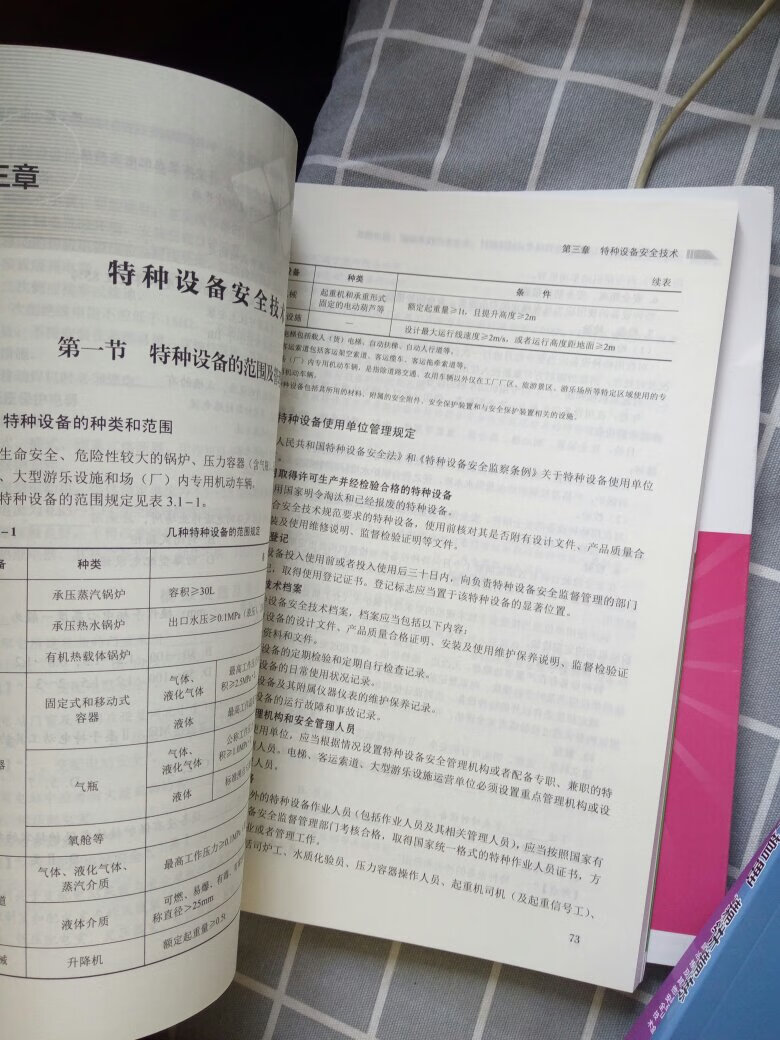 三章
特种设备安全技
第一节 特种设备的范围及
特种设备的种类和范围
生命安全、危险性较大的锅炉、压力容器（含气瓶
、大型游乐设施和场（厂）内专用机动车辆。
特种设备的范围规定见表 3.1-1。
-1 几种特种设备的范围规定
备 种类
承压蒸汽锅炉 容积≥30L
承压热水锅炉 出口水压≥0.1MPa（表压
有机热载体锅炉
固定式和移动式
容器
气体、
液化气体
最高工作
积≥2.5MPa
液体
最高工作
器
气瓶
气体、
液化气体
公称工作
积≥1.0MPa
液体
标准沸点
氧舱等
道
气体、液化气体、
蒸汽介质
最高工作压力≥0.1MPa
液体介质
可燃、易爆、有毒、
称直径≥25mm
械 升降机 额定起重量≥0.5t
第三章 特种设备安全技术
续表
设备 种类 条件
械
起重机和承重形式
固定的电动葫芦等
额定起重量≥1t，且提升高度≥2m
设施 — 设计最大运行线速度≥2m/s，或者运行高度距地面≥2m
电梯包括载人（货）电梯、自动扶梯、自动人行道等。
客运索道包括客运架空索道、客运缆车、客运拖牵索道等。
（厂）内专用机动车辆，是指除道路交通、农用车辆以外仅在工厂厂区、旅游景区、游乐场所等特定区域使用的专
机动车辆。
种设备包括其所用的材料、附属的安全附件、安全保护装置和与安全保护装置相关的设施。
特种设备使用单位管理规定
人民共和国特种设备安全法》和《特种设备安全监察条例》关于特种设备使用单位
取得许可生产并经检验合格的特种设备
用国家明令淘汰和已经报废的特种设备。
合安全技术规范要求的特种设备，使用前核对其是否附有设计文件、产品质量合
装及使用维修说明、监督检验证明等文件。
登记
设备投入使用前或者投入使用后三十日内，向负责特种设备安全监督管理的部门
记，取得使用登记证书。登记标志应当置于该特种设备的显著位置。
技术档案
设备安全技术档案，档案应当包括以下内容：
设备的设计文件、产品质量合格证明、安装及使用维护保养说明、监督检验证
资料和文件。
设备的定期检验和定期自行检查记录。
设备的日常使用状况记录。
设备及其附属仪器仪表的维护保养记录。
设备的运行故障和事故记录。
理机构和安全管理人员
使用单位，应当根据情况设置特种设备安全管理机构或者配备专职、兼职的特
人员。电梯、客运索道、大型游乐设施运营单位必须设置重点管理机构或设
人员。
外的特种设备作业人员（包括作业人员及其相关管理人员），应当按照国家有
备安全监督管理部门考核合格，取得国家统一格式的特种作业人员证书，方
业或者管理工作。
括司炉工、水质化验员、压力容器操作人员、起重机司机（及起重信号工）、
73